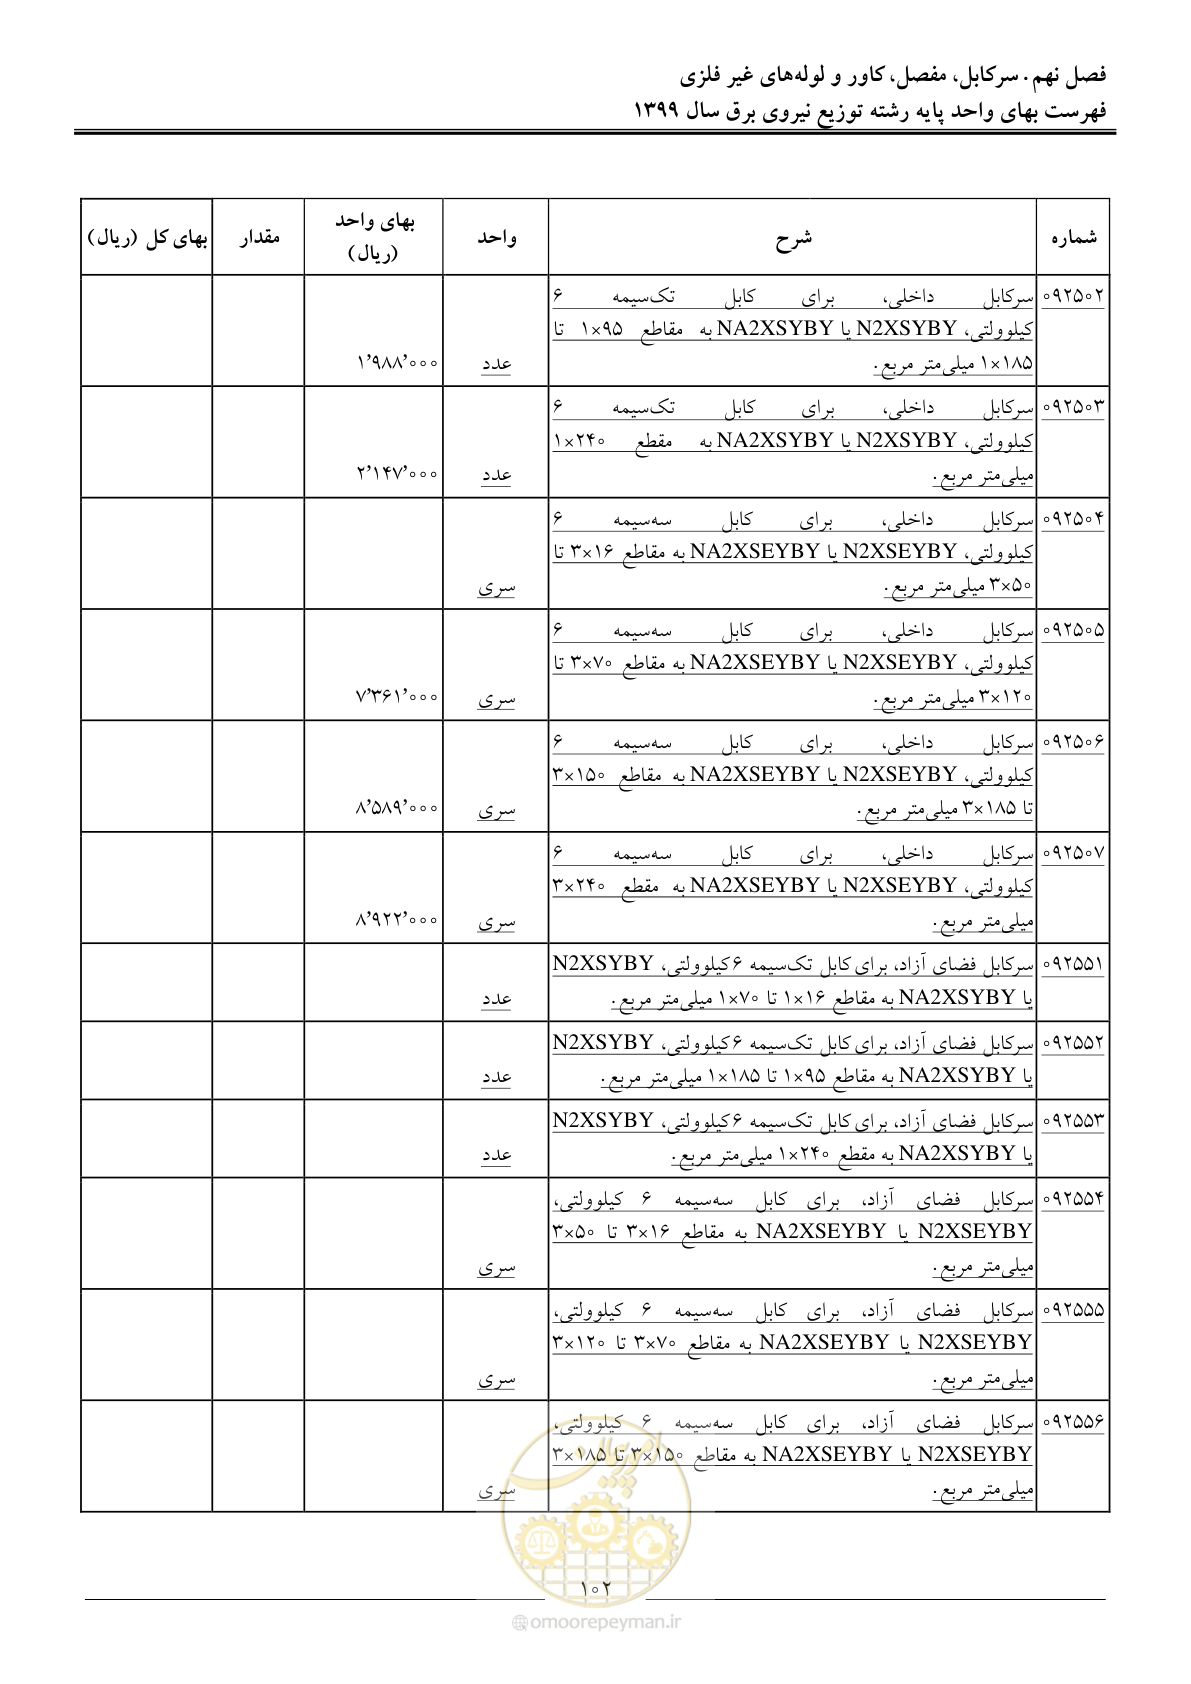 فصل نهم. سرکابل، مفصل، کاور و لوله‌های غیر فلزی
فهرست بهای واحد پایه رشته توزیع نیروی برق سال ۱۳۹۹
شماره شرح واحد بهای واحد (ریال) مقدار بهای کل (ریال)
۰۹۲۵۰۲ سرکابل داخلی، برای کابل تک‌سیمه ۶
کیلوولتی، N2XSYBY یا NA2XSYBY به مقاطع ۱×۹۵ تا
۱×۱۸۵ میلی‌متر مربع. عدد ۱٬۹۸۸٬۰۰۰
۰۹۲۵۰۳ سرکابل داخلی، برای کابل تک‌سیمه ۶
کیلوولتی، N2XSYBY یا NA2XSYBY به مقطع ۱×۲۴۰
میلی‌متر مربع. عدد ۲٬۱۴۷٬۰۰۰
۰۹۲۵۰۴ سرکابل داخلی، برای کابل سه‌سیمه ۶
کیلوولتی، N2XSEYBY یا NA2XSEYBY به مقاطع ۳×۱۶ تا
۳×۵۰ میلی‌متر مربع. سری
۰۹۲۵۰۵ سرکابل داخلی، برای کابل سه‌سیمه ۶
کیلوولتی، N2XSEYBY یا NA2XSEYBY به مقاطع ۳×۷۰ تا
۳×۱۲۰ میلی‌متر مربع. سری ۷٬۳۶۱٬۰۰۰
۰۹۲۵۰۶ سرکابل داخلی، برای کابل سه‌سیمه ۶
کیلوولتی، N2XSEYBY یا NA2XSEYBY به مقاطع ۳×۱۵۰
تا ۳×۱۸۵ میلی‌متر مربع. سری ۸٬۵۸۹٬۰۰۰
۰۹۲۵۰۷ سرکابل داخلی، برای کابل سه‌سیمه ۶
کیلوولتی، N2XSEYBY یا NA2XSEYBY به مقطع ۳×۲۴۰
میلی‌متر مربع. سری ۸٬۹۲۲٬۰۰۰
۰۹۲۵۵۱ سرکابل فضای آزاد، برای کابل تک‌سیمه ۶کیلوولتی، N2XSYBY
یا NA2XSYBY به مقاطع ۱×۱۶ تا ۱×۷۰ میلی‌متر مربع. عدد
۰۹۲۵۵۲ سرکابل فضای آزاد، برای کابل تک‌سیمه ۶کیلوولتی، N2XSYBY
یا NA2XSYBY به مقاطع ۱×۹۵ تا ۱×۱۸۵ میلی‌متر مربع. عدد
۰۹۲۵۵۳ سرکابل فضای آزاد، برای کابل تک‌سیمه ۶کیلوولتی، N2XSYBY
یا NA2XSYBY به مقطع ۱×۲۴۰ میلی‌متر مربع. عدد
۰۹۲۵۵۴ سرکابل فضای آزاد، برای کابل سه‌سیمه ۶ کیلوولتی،
N2XSEYBY یا NA2XSEYBY به مقاطع ۳×۱۶ تا ۳×۵۰
میلی‌متر مربع. سری
۰۹۲۵۵۵ سرکابل فضای آزاد، برای کابل سه‌سیمه ۶ کیلوولتی،
N2XSEYBY یا NA2XSEYBY به مقاطع ۳×۷۰ تا ۳×۱۲۰
میلی‌متر مربع. سری
۰۹۲۵۵۶ سرکابل فضای آزاد، برای کابل سه‌سیمه ۶ کیلوولتی،
N2XSEYBY یا NA2XSEYBY به مقاطع ۳×۱۵۰ تا ۳×۱۸۵
میلی‌متر مربع. سری
۱۰۲
omoorepeyman.ir